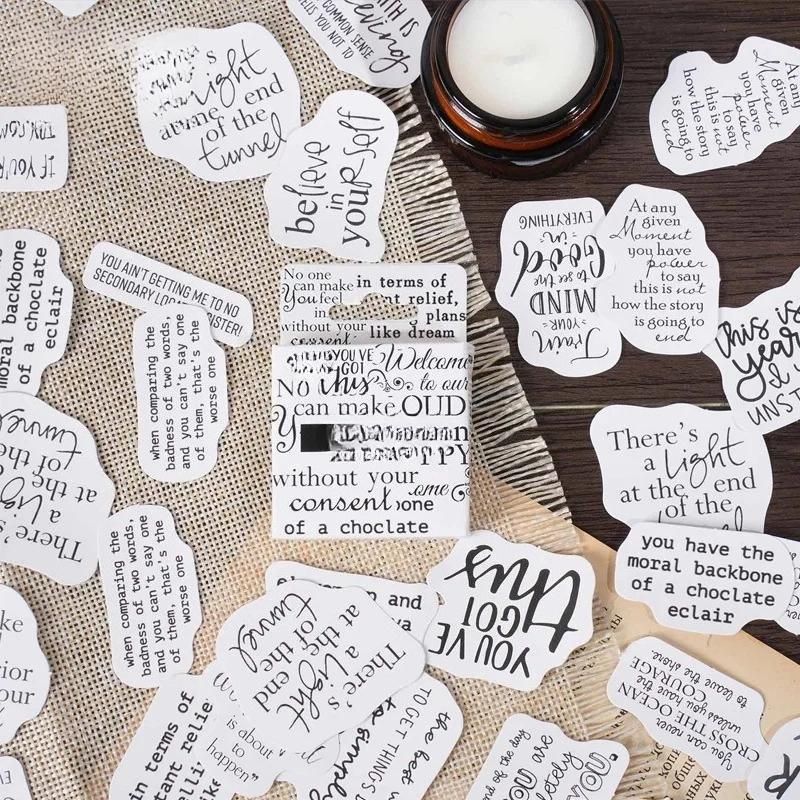 TELLS YOU NOT TO
COMMON SENSE
light
at the end
of the
tunnel
believe
in
yourself
At any
given
Moment
you have
power
to say
this is not
how the story
is going to
end
IF YOU'RE
EVERYTHING
in
Good
to see the
MIND
YOUR
Train
At any
given
Moment
you have
power
to say
this is not
how the story
is going to
end
moral backbone
of a choclate
eclair
YOU AIN'T GETTING ME TO NO
SECONDARY
No one
can make
You feel
without your
consent
in terms of
relief,
plans
like dream
when comparing the
badness of two words,
and you can't say one
of them, that's the
worse one
YOU'VE
GOT
this
Welcome
to our
No
can make
OUD
without your
consent
of a choclate
this is
year
There's
a light
at the end
of the
tunnel
There's
a light
at the end
of the
you have the
moral backbone
of a choclate
eclair
when comparing the
badness of two words,
and you can't say one
of them, that's the
worse one
and
There's
a light
at the end
of the
tunnel
YOU'VE
GOT
this
your
in terms of
is about
to
happen"
TO GET THINGS
the best
simply
end of the day
You can never
CROSS THE OCEAN
unless you have the
COURAGE
to leave the shore.